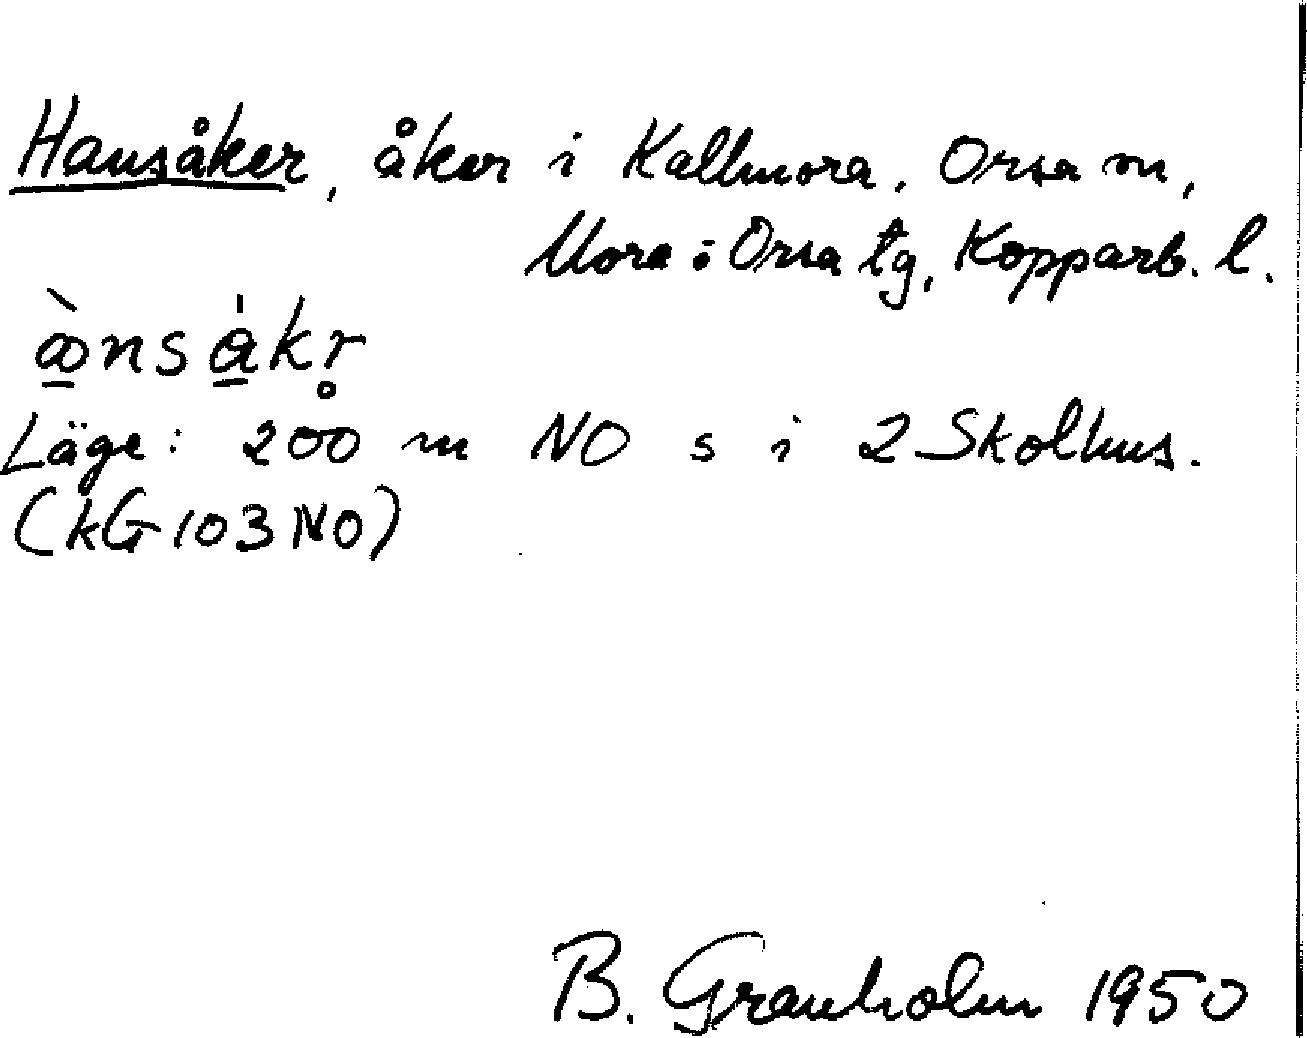 Hansåker, åker i Kallmora, Orsa sn,
Mora o Orsa tg, Kopparb. l.
Läge: 200 m NO s i 2 Skolhus.
(kG 103 NO)
B. Granholm 1950